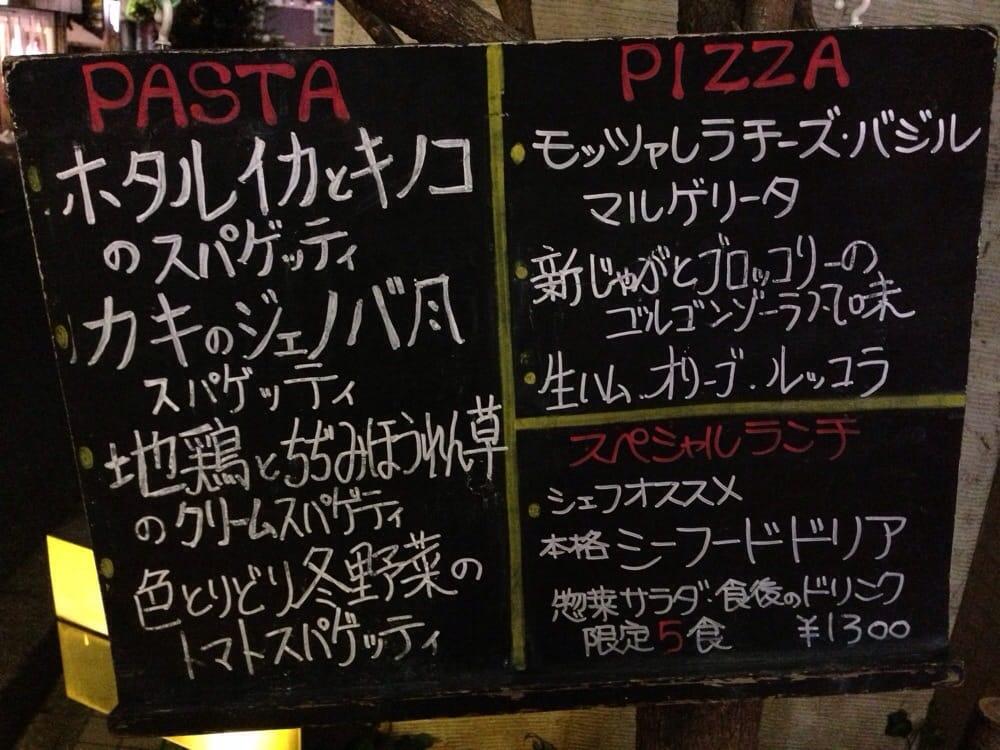 PASTA
ホタルイカとキノコ
のスパゲッティ
カキのジェノバ風
スパゲッティ
地鶏とちぢみほうれん草
のクリームスパゲティ
色とりどり冬野菜の
トマトスパゲッティ
PIZZA
モッツァレラチーズ・バジル
マルゲリータ
新じゃがとブロッコリーの
ゴルゴンゾーラ風味
生ハム.オリーブ.ルッコラ
スペシャルランチ
シェフオススメ
本格シーフードドリア
惣菜サラダ・食後のドリンク
限定5食 ¥1300